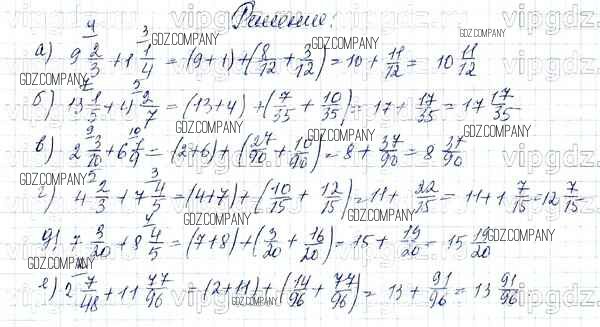 Решение:
а) 9 2/3 + 1 1/4 = (9+1)+(8/12 + 3/12) = 10 + 11/12 = 10 11/12
б) 13 1/5 + 4 2/7 = (13+4) + (7/35 + 10/35) = 17 + 17/35 = 17 17/35
в) 2 3/10 + 6 1/9 = (2+6) + (27/90 + 10/90) = 8 + 37/90 = 8 37/90
г) 4 2/3 + 7 4/5 = (4+7) + (10/15 + 12/15) = 11 + 22/15 = 11 + 1 7/15 = 12 7/15
д) 7 3/20 + 8 4/5 = (7+8) + (3/20 + 16/20) = 15 + 19/20 = 15 19/20
е) 2 7/48 + 11 77/96 = (2+11) + (14/96 + 77/96) = 13 + 91/96 = 13 91/96